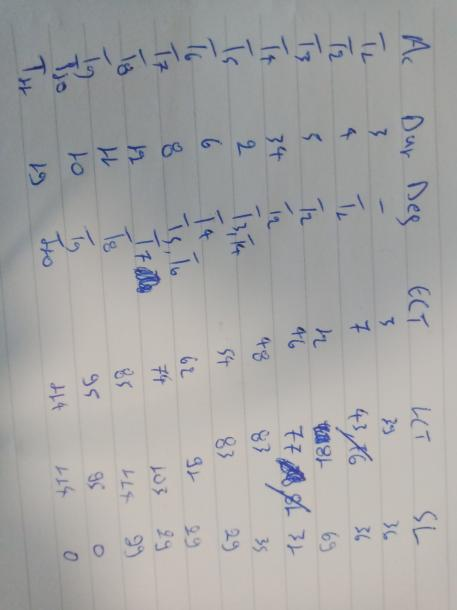 Ac Dur Deg ECT LCT SL
T1 3 - 3 39 36
T2 4 T1 7 43 36
T3 5 T2 12 81 69
T4 34 T2 46 77 31
T5 2 T3, T4 48 83 35
T6 6 T4 54 83 29
T7 8 T5, T6 62 91 29
T8 12 T7 74 103 29
T9 11 T8 85 114 29
T10 10 T9 95 95 0
T11 19 T10 114 114 0